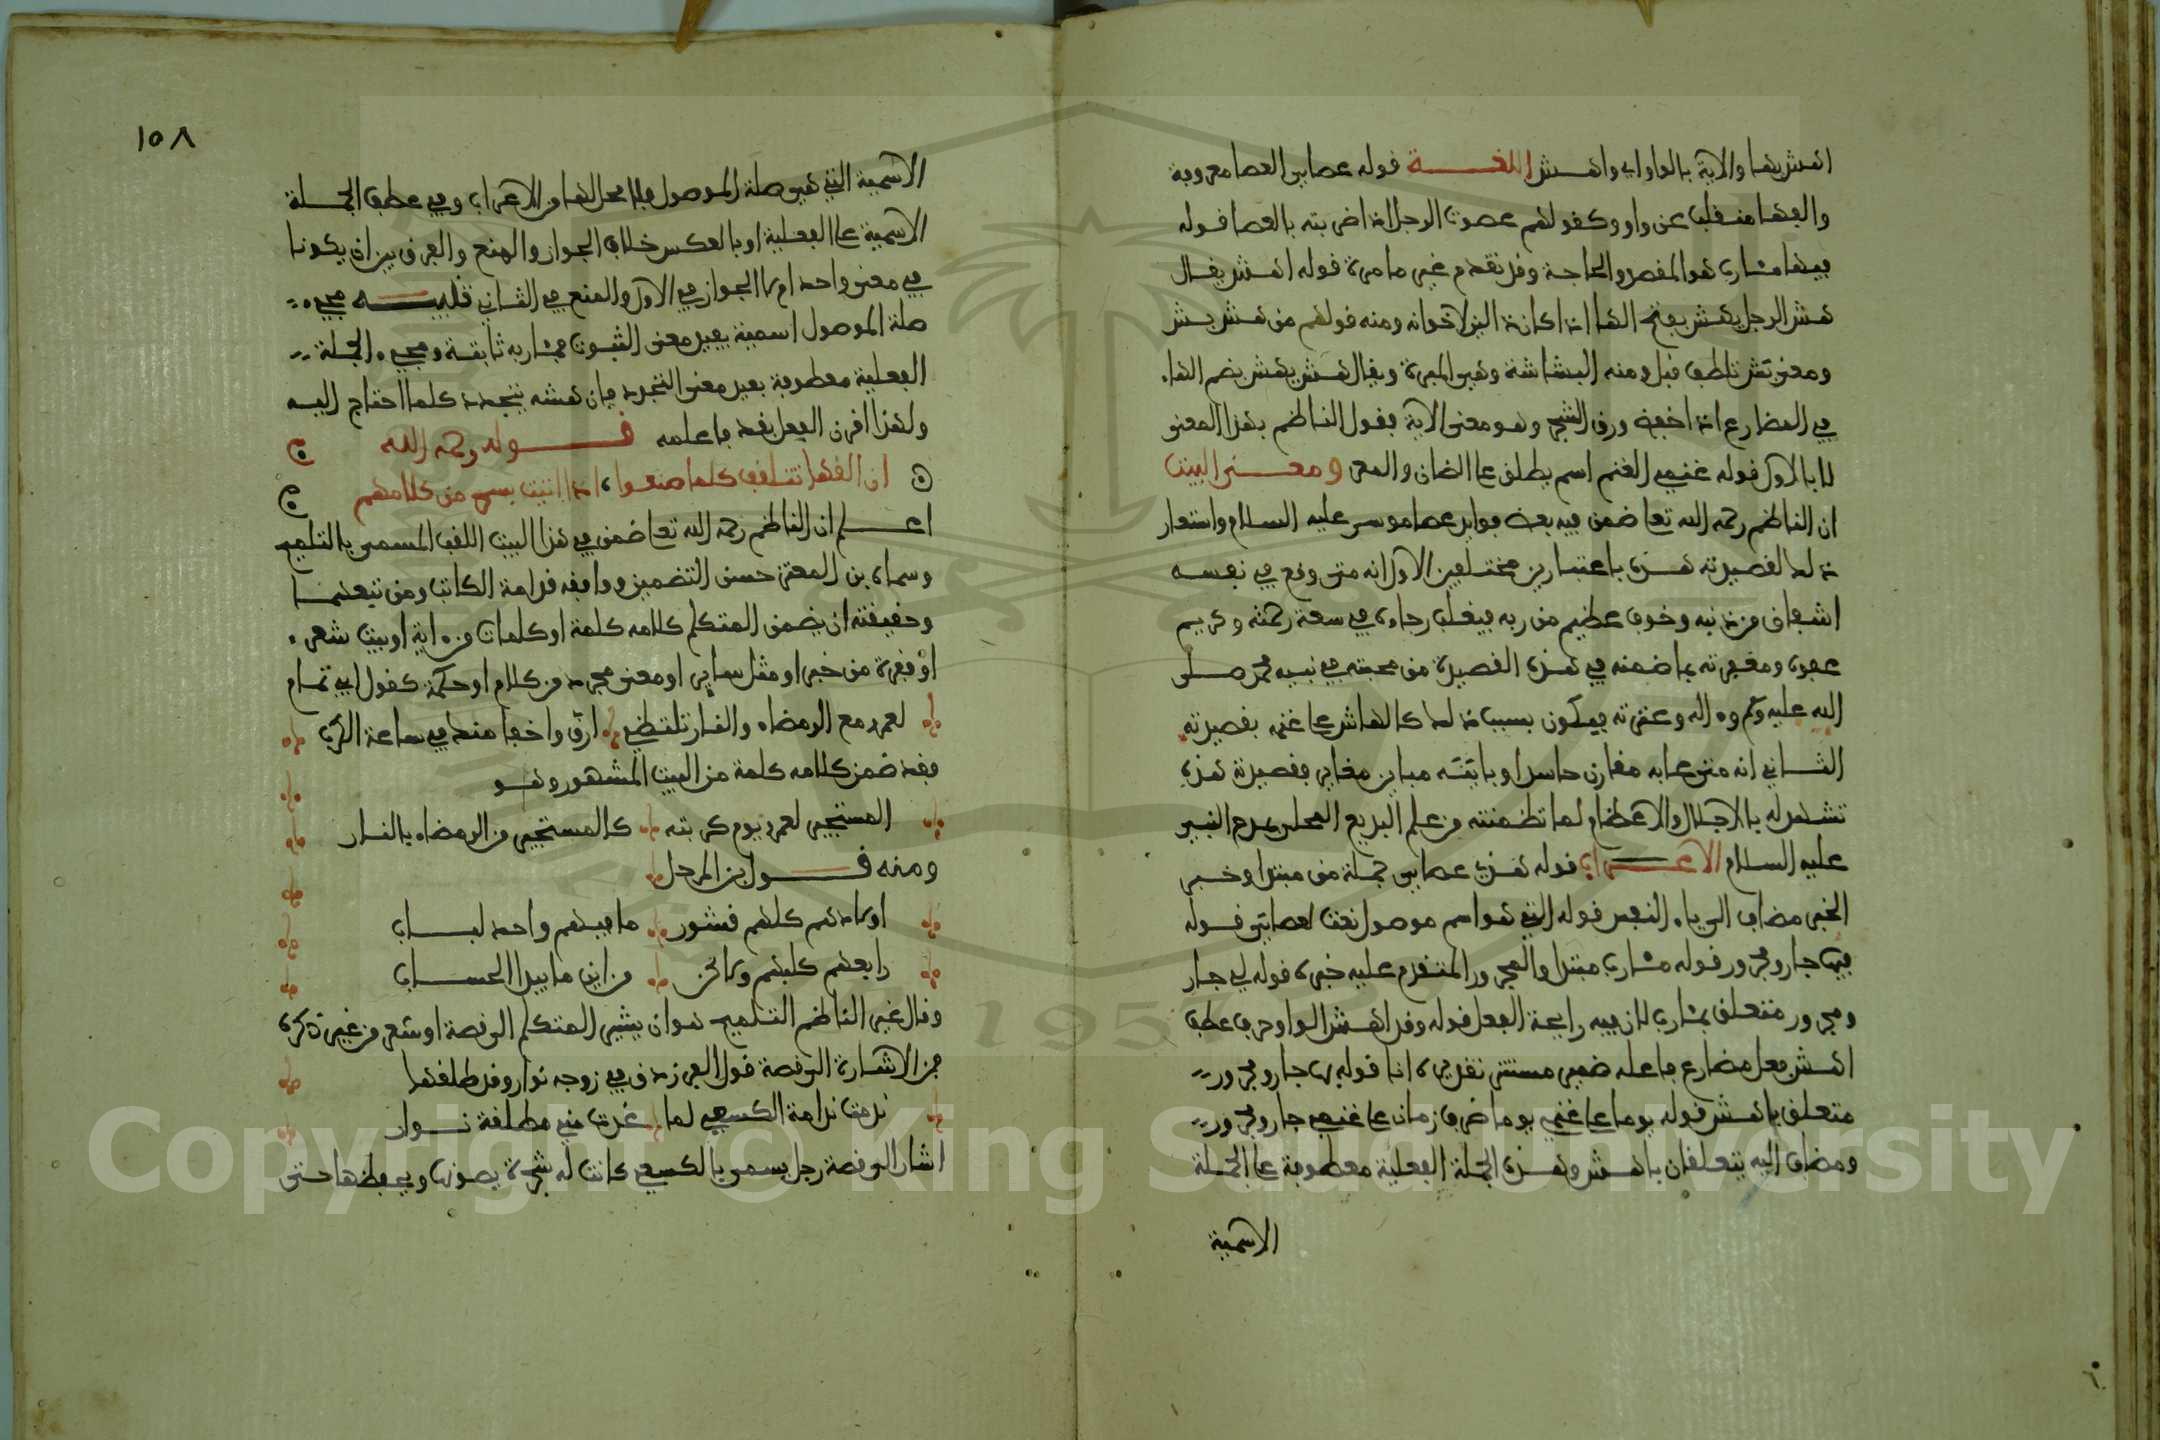 اهش بها والاية بالواو اي واهش اللغة قوله عصاي العصا معروفة
والفها منقلب عن واو وكقولهم عصوت الرجل اذا ضربته بالعصا قوله
فيها مئارب هو المقصد والحاجة وقد تقدم غير ما مرة قوله اهش يقال
هش الرجل يهش بفتح الهاء اذا كان لاخوانه ومنه قولهم من هش بش
ومعنى بش تلطف قبل ومنه البشاشة وهي المبرة ويقال هش يهش بضم الهاء
في المضارع اذا ورق الشجر وهو معنى الاية فقول الناظم بهذا المعنى
لا بالاول قوله غنمي الغنم اسم يطلق على الضان والمعز ومعنى البيت
ان الناظم رحمه الله تعا ضمن فيه بعض فوايد عصا موسى عليه السلام واستعار
ذلك لقصيدته هذه باعتبارين مختلفين الاول انه متى وقع في نفسه
اشفاق من ذنبه وخوف عظيم من ربه فيغلب رجاءه في سعة رحمته وكريم
عفوه ومغفرته بما ضمنه في هذه القصيدة من محبته في نبيه محمد صلى
الله عليه وسلم وءاله وعترته فيكون بسبب ذلك كالهاش على غنمه بقصيدته
الثاني انه متى عابه مقارن حاسد او باينه مباين فقصيدته هذه
تشهد له بالاجلال والاعظام لما تضمنته من علم البديع المحلى بمدح النبي
عليه السلام الاعراب قوله هذه عصاي جملة من مبتدا وخبر
الخبر مضاف الى ياء النفس قوله التي هو اسم موصول نعت لعصاي قوله
فيها جار ومجرور قوله مئارب مبتدا والمجرور المتقدم عليه خبره قوله لي جار
ومجرور متعلق بمئارب لان فيه رايحة الفعل قوله وقد اهش الواو حرف عطف
اهش فعل مضارع فاعله ضمير مستتر تقديره انا قوله بها جار ومجرور
متعلق باهش قوله يوما على غنمي يوما ظرف زمان على غنمي جار ومجرور
ومضاف اليه يتعلقان باهش وهذه الجملة الفعلية معطوفة على الجملة
الاسمية
١٥٨
الاسمية التي هي صلة الموصول فلا محل لها من الاعراب وفي عطف الجملة
الاسمية على الفعلية او بالعكس خلاف الجواز والمنع والفرق بين ان يكونا
في معنى واحد ام لا الجواز في الاول والمنع في الثاني تنبيه مجيء
صلة الموصول اسمية يفيد معنى الثبوت فمئاربه ثابتة ومجيء الجملة
الفعلية معطوفة يفيد معنى التجدد فان هشه يتجدد كلما احتاج اليه
ولهذا اقرن الفعل بقد فاعلمه قوله رحمه الله
ان القها تتلقف كلما صنعوا اذا اتيت بسحر من كلامهم
اعلم ان الناظم رحمه الله تعا ضمن في هذا البيت اللقب المسمى بالتلميح
وسماه بن المعتز حسن التضمين ووافقه قدامة الكاتب ومن تبعهما
وحقيقته ان يضمن المتكلم كلامه كلمة او كلمات من ءاية او بيت شعر
او فقرة من خبر او مثل ساير او معنى مجرد من كلام او حكمة كقول ابي تمام
لعمرو مع الرمضاء والنار تلتظي ارق واحفا منك في ساعة الكرب
فقد ضمن كلامه كلمة من البيت المشهور وهو
المستجير لعمرو يوم كربته كالمستجير من الرمضاء بالنار
ومنه قول بن المرحل
اولادهم كلهم قشور ما فيهم واحد لباب
رابعهم كلبهم ولاكن من اين ما بيدا الحساب
وقال غير الناظم التلميح هو ان يشير المتكلم الى قصة او شعر من غير ذكره
فمن الاشارة الى قصة قول الفرزدق في زوجه نوار وقد طلقها
ندمت ندامة الكسعي لما غدت مني مطلقة نوار
اشار الى قصة رجل يسمى بالكسعي كانت له شجرة يصونها ويحفظها حتى
Copyright © King Saud University
195